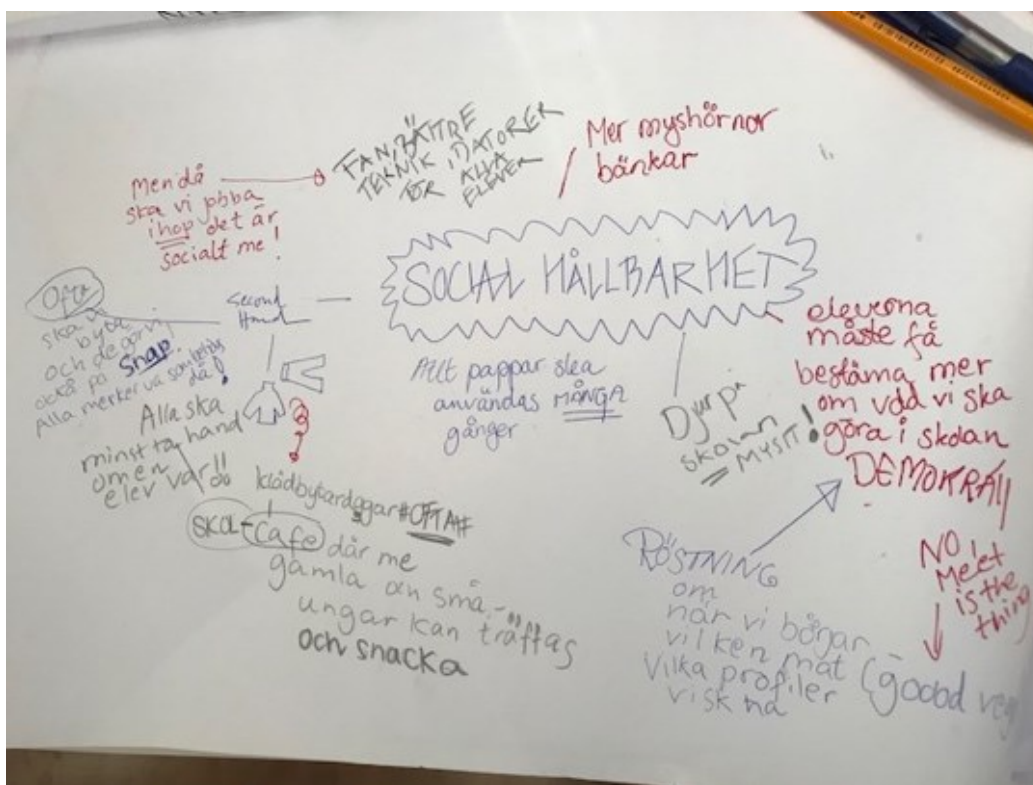 Men då
ska vi jobba
ihop det är
socialt me!
FAN, BÄTTRE
TEKNIK, DATORER
FÖR ALLA
ELEVER
Mer myshörnor
bänkar
SOCIAL HÅLLBARHET
Second
Hand
Ofta
ska vi
byta
och de gör vi
också på Snap
Alla märker va som behövs
då!
Allt pappar ska
användas MÅNGA
gånger
Djur på
skolan
MYSIT!
eleverna
måste få
bestäma mer
om vdd vi ska
göra i skolan
DEMOKRATI
Alla ska
minst ta hand
om en
elev var!!
klädbytardagar #OFTA#
SKOL-Cafe där me
gamla än små-
ungar kan träffas
och snacka
RÖSTNING
om
när vi börjar
vilken mat (good veg
vilka profiler
vi ska ha
NO!
Meet
is the
thing